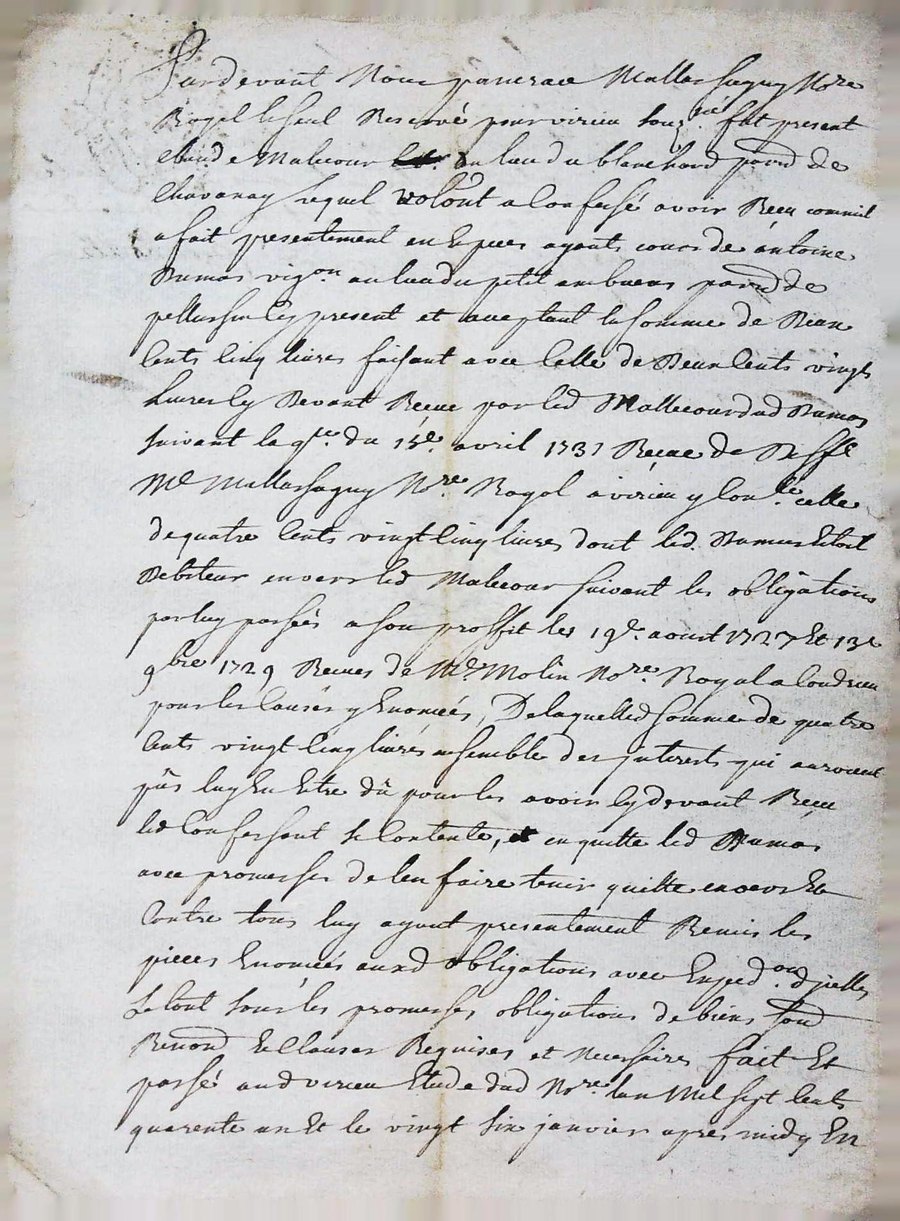 Pardevant Nous pancrace Mallassagny No.re
Royal le seul Reservé pour virieu souz.né fut present
claude Malecour du lieu du blanchard parr.d de
Chavanay lequel volont.d a confessé avoir Receu comme il
a fait presentement en Espices ayants cours de antoine
Dumas vig.on au lieu du petit embuens parr.d de
pellussin les present et aceptant la somme de Deux
Cents Cinq livres faisant avec Celle de Deux Cents vingt
Livres Cy Devant Receue par led Mallecour dud Dumas
suivant la q.ce du 15.e avril 1737 Receue de
M.e Mallassagny No.re Royal a virieu y Con.le celle
de quatre Cents vingt Cinq livres dont led. Dumas Etoit
Debiteur envers led Malecour suivant les obligations
par luy passées a son proffit les 19.e aoust 1727 Et 13.e
9bre 1729 Receues de M.e Molin No.re Royal a Condrieu
pour les Causes y Enoncées, De laquelle d somme de quatre
Cents vingt Cinq livres ensemble des jnterests qui auroient
pûs luy En Estre dû pour les avoir Cy devant Receu
led Confessant se Contente, et en quitte led Dumas
avec promesses de l'en faire tenir quitte envers Et
Contre tous luy ayant presentement Remis les
pieces Enoncées auxd obligations avec Exped.on d'jcelles
Le tout sous les promesses obligations de biens
Renond Et Clauses Requises et Necessaires fait Et
passé aud virieu Etude dud No.re l'an Mil sept Cents
quarente un Et le vingt six janvier apres midy En